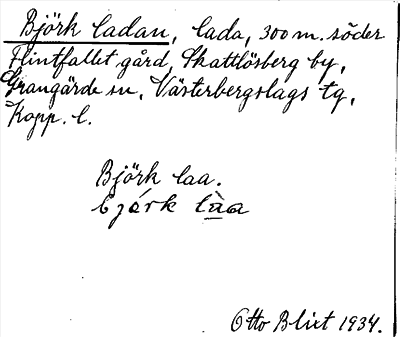 Björk ladan, lada, 300 m. söder
Flintfallet gård, Skattlösberg by,
Grangärde sn, Västerbergslags tg,
Kopp. l.
Björk laa.
bjǿrk là̱a
Otto Blixt 1934.